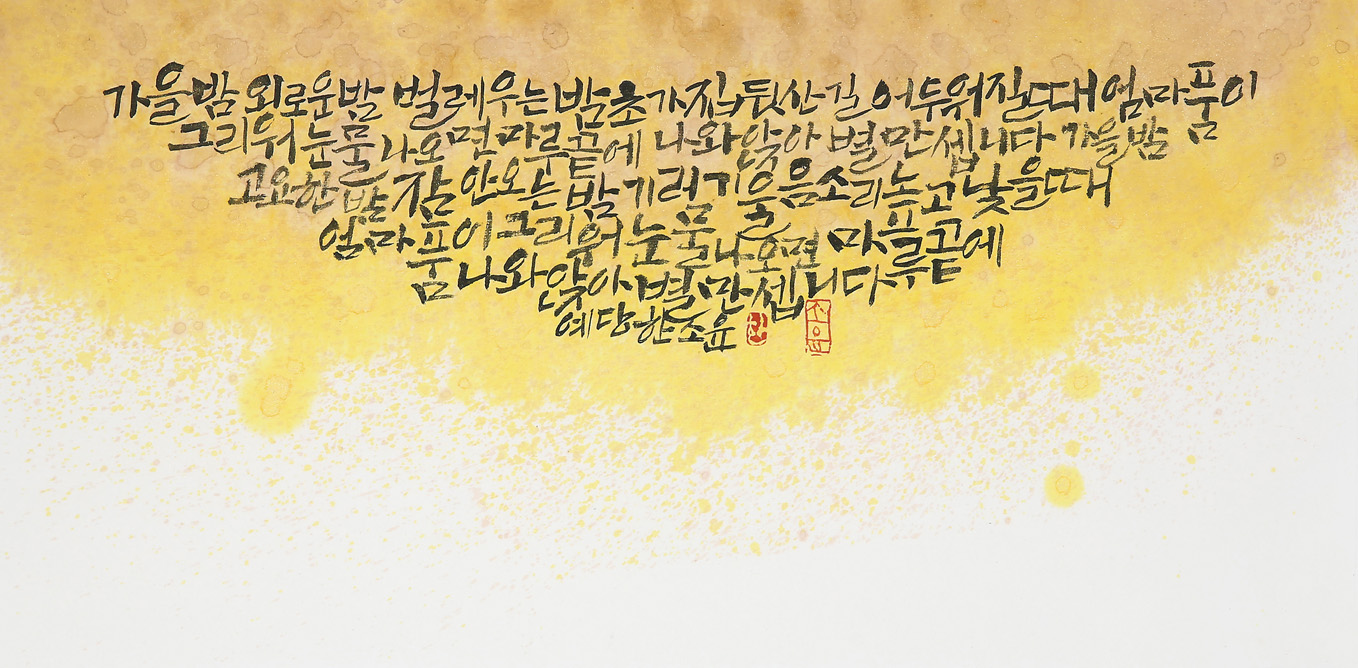 가을밤 외로운밤 벌레우는밤 초가집 뒷산길 어두워질때 엄마품이
그리워 눈물 나오면 마루끝에 나와앉아 별만셉니다 가을밤
고요한 밤 잠 안오는 밤 기러기 울음소리 높고 낮을때
엄마품이 그리워 눈물 나오면 마루끝에
나와앉아 별만셉니다
예당 한조윤
조윤